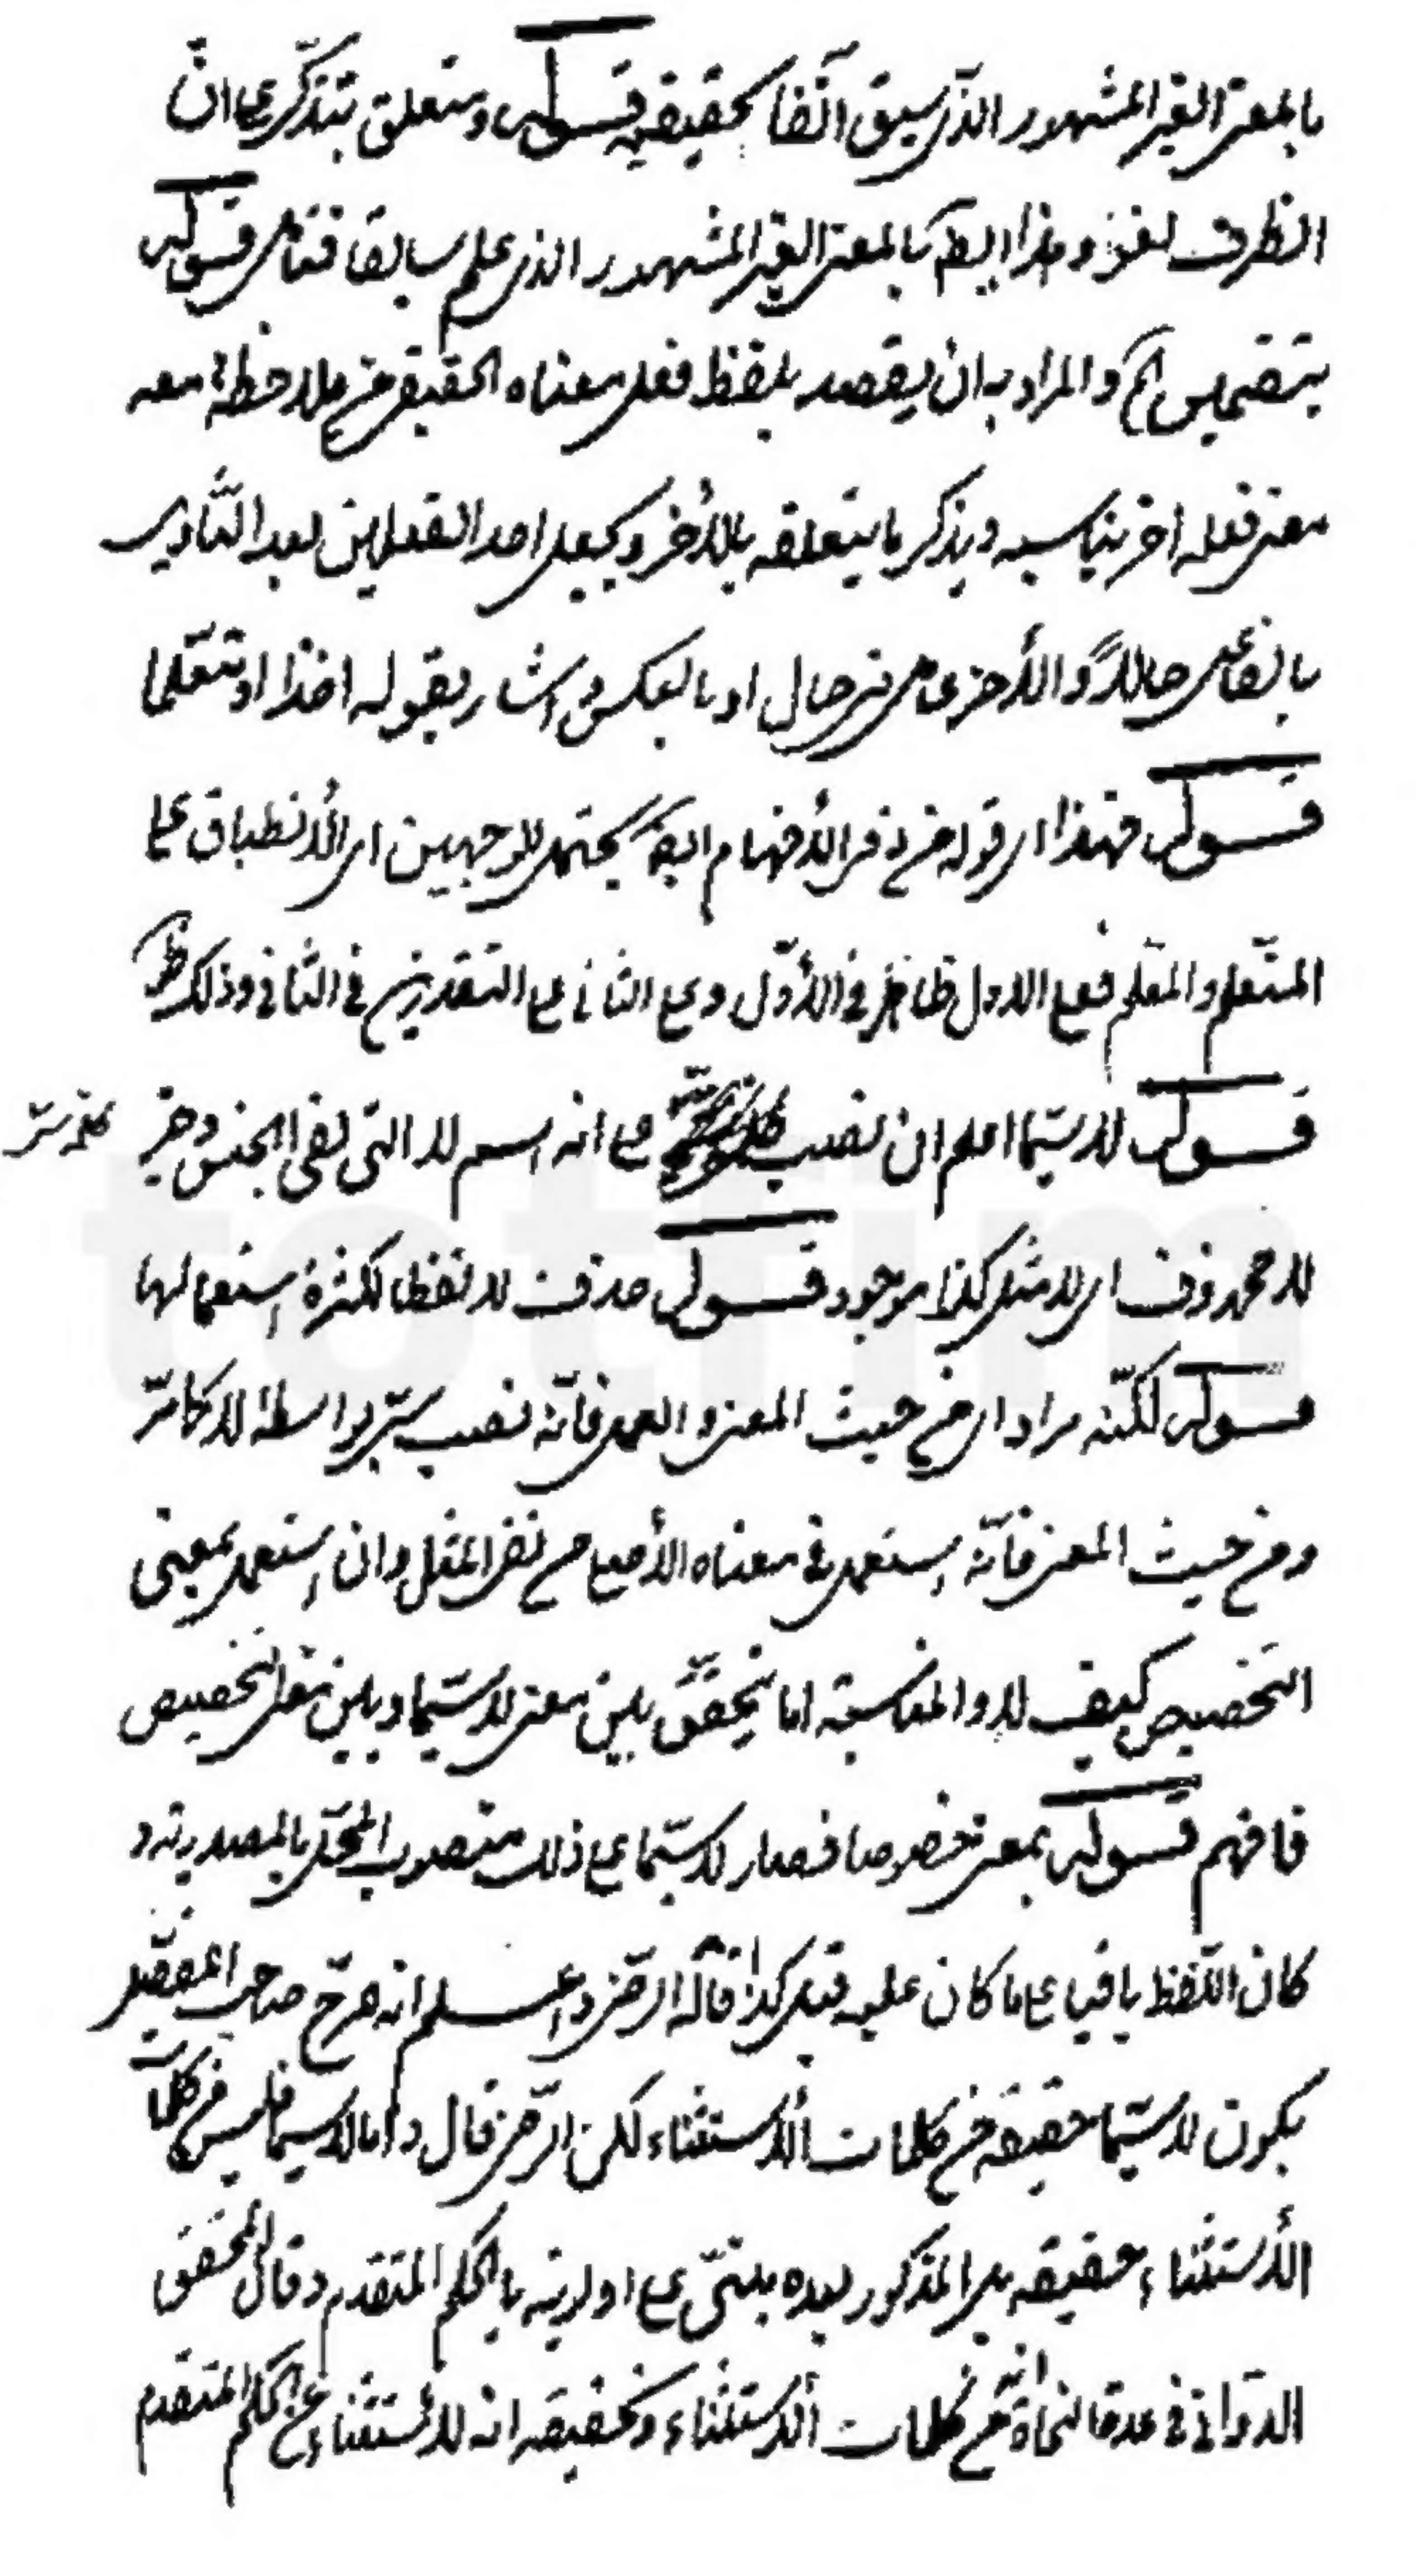 بالمعنى الغير المشهور الذى سبق آنفا تحقيقه قوله ومتعلق بتذكر على ان
الظرف لغو وهذا ايضا بالمعنى الغير المشهور الذى علم سابقا فتأمل قوله
بتضمين الخ والمراد به ان يقصد بلفظ فعل معناه الحقيقى مع ملاحظة معه
معنى فعل اخر يناسبه ويذكر ما يتعلقه بالأخر ويجعل احد الفعلين بعد التأويل
بالفاعل حالاً والأخرى عامل فى حال او بالعكس اشار بقوله اخذا او متعلما
قوله فهذا اى قوله من ذى الأفهام ايضا يحتمل الوجهين اى الأنطباق على
المتعلم والمعلم فعلى الاول ظاهر فى الأول وعلى الثانى على التقديرين فى الثانى وذلك ظ
قوله لاسيما اعلم ان نصب على انه اسم لا التى لنفى الجنس وخبر
لا محذوف اى لا مثل كذا موجود قوله حذفت لا لفظا لكثرة استعمالها
قوله لكنه مراد اى من حيث المعنى والعمل فانه نصب سى بواسطة لا كامر
ومن حيث المعنى فانه استعمل فى معناه الأصلى مع نفى المثل وان استعمل بمعنى
التخصيص كيف لا والمناسبة انما يتحقق بين معنى لاسيما وبين معنى التخصيص
فافهم قوله بمعنى خصوصا فصار لاسيما على ذلك منصوب المحل بالمصدرية و
كان اللفظ باقيا على ما كان عليه قبل كذا قاله الرضى واعلم انه صرح صاحب المفصل
بكون لاسيما حقيقة من كلمات الأستثناء لكن الرضى قال واما لاسيما فليس من كلمات
الأستثناء حقيقه بل المذكور بعده ينبه على اولويته بالحكم المتقدم وقال المحقق
الدوانى فى عده النحاة من كلمات الأستثناء وتحقيقه انه للأستثناء عن الحكم المتقدم